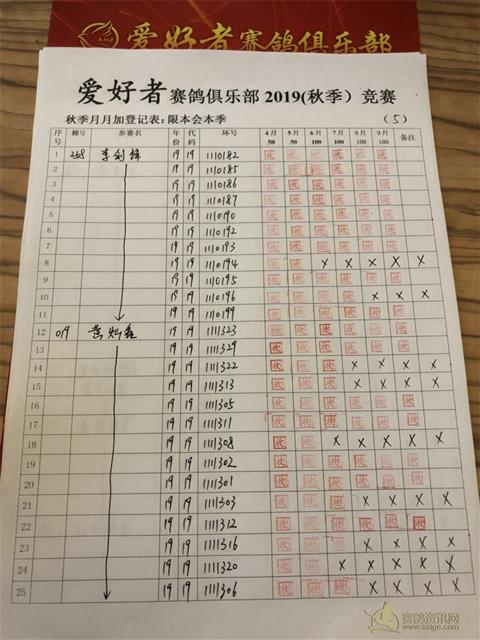 爱好者赛鸽俱乐部
爱好者赛鸽俱乐部2019(秋季）竞赛
秋季月月加登记表：限本会本季 （5）
序号 棚号 参赛名 年份 代码 环号 4月50 5月50 6月100 7月100 8月100 9月100 备注
1 李剑锋 19 19 1110182
2 19 19 1110185
3 19 19 1110186
4 19 19 1110187
5 19 19 1110190
6 19 19 1110192
7 19 19 1110193
8 19 19 1110194 X X X X X
9 19 19 1110195
10 19 19 1110196 X X X
11 19 19 1110199
12 019 19 19 1111323
13 19 19 1111329
14 19 19 1111322 X X X X
15 19 19 1111313 X X X X
16 19 19 1111305
17 19 19 1111311
18 19 19 1111308 X X X X X
19 19 19 1111302
20 19 19 1111301
21 19 19 1111303 X X X X
22 19 19 1111312
23 19 19 1111316 X X X X
24 19 19 1111320 X X X X X
25 19 19 1111306 X X X X
赛鸽资讯网
www.saige.com